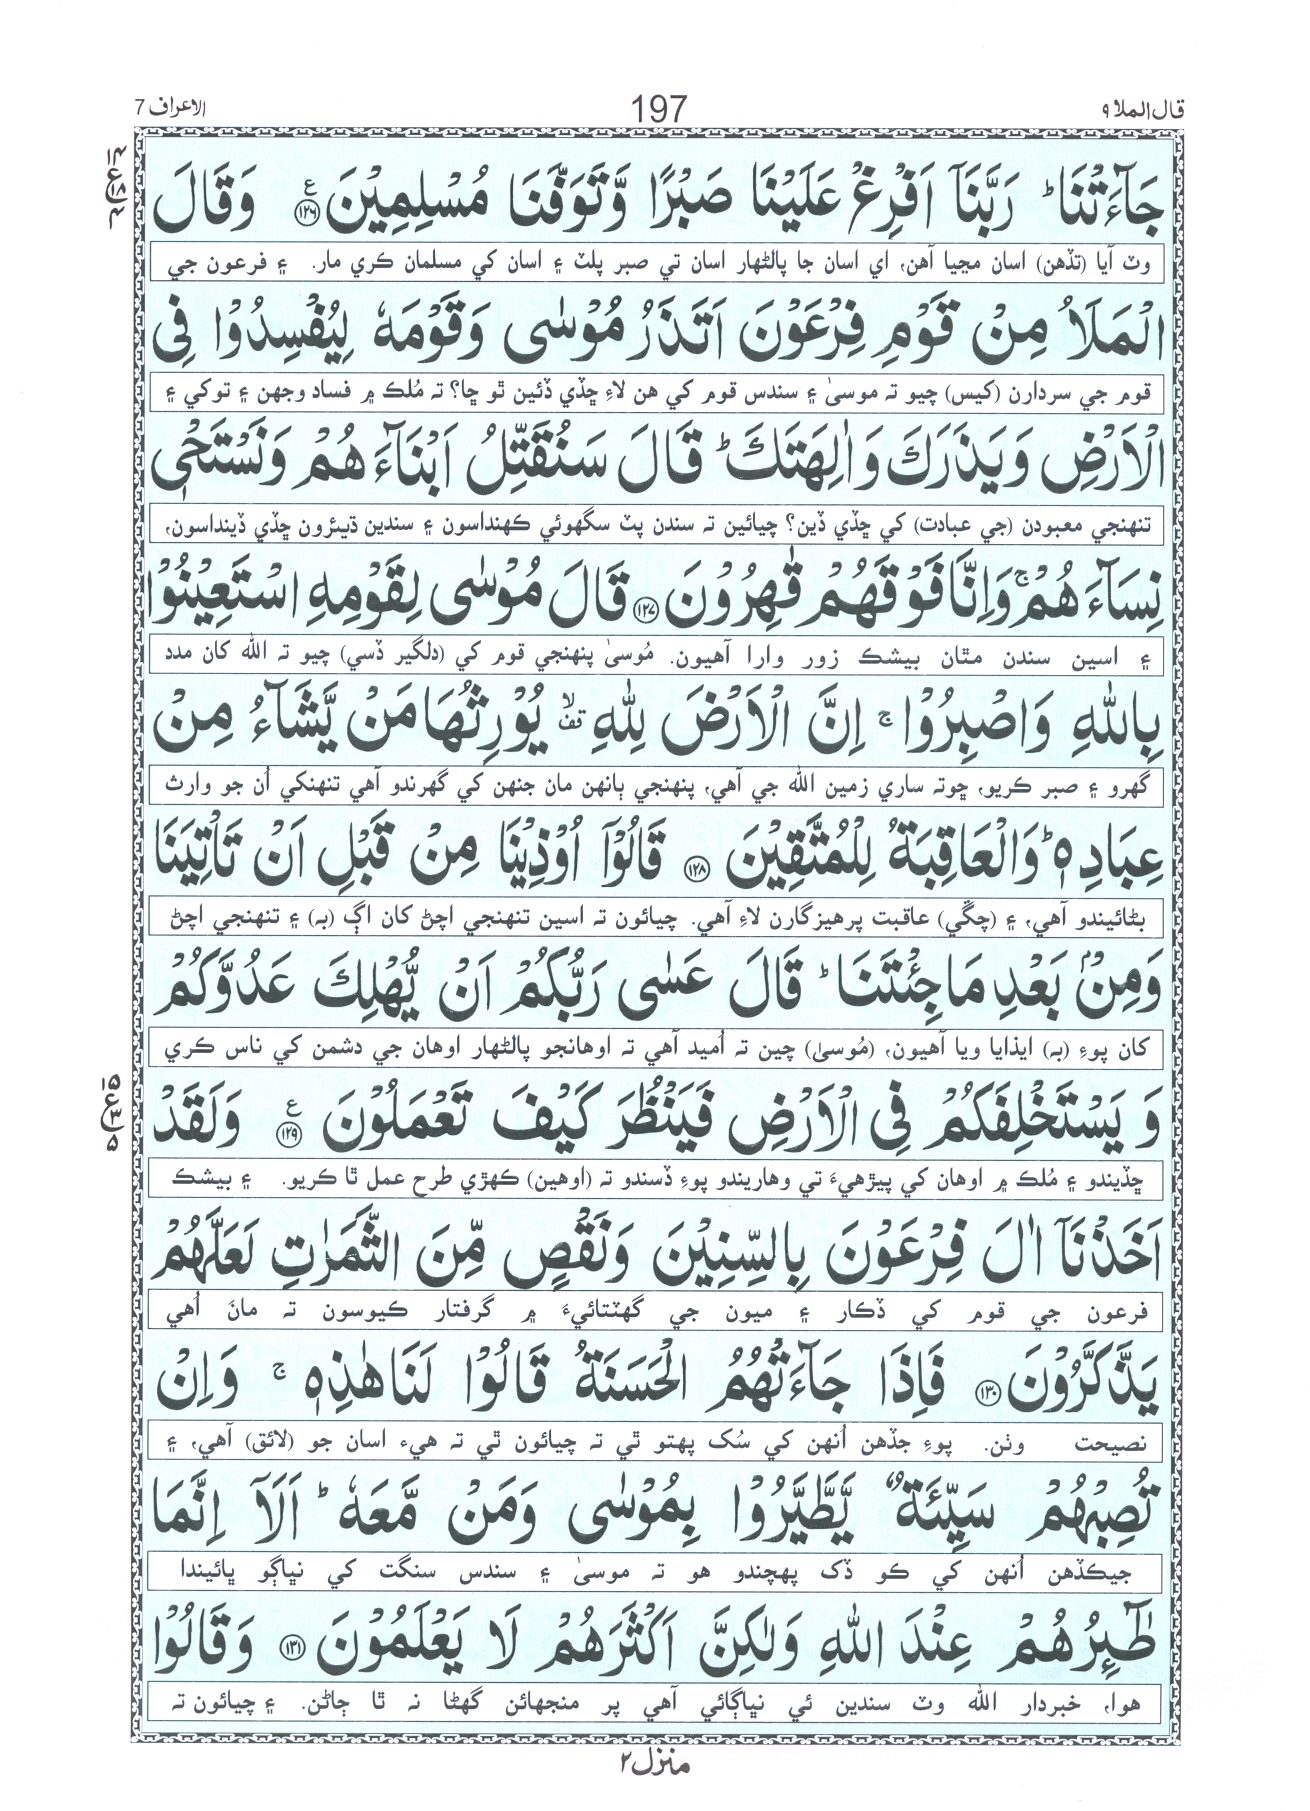 قال الملا ۹
197
الاعراف 7
جَآءَتْنَا ؕ رَبَّنَاۤ اَفْرِغْ عَلَيْنَا صَبْرًا وَّتَوَفَّنَا مُسْلِمِيْنَ ﴿۱۲۶﴾ ع وَقَالَ
وٽ آيا (تڏهن) اسان مڃيا آهن، اي اسان جا پالڻهار اسان تي صبر پلٽ ۽ اسان کي مسلمان ڪري مار. ۽ فرعون جي
الْمَلَاُ مِنْ قَوْمِ فِرْعَوْنَ اَتَذَرُ مُوْسٰى وَقَوْمَهٗ لِيُفْسِدُوْا فِى
قوم جي سردارن (کيس) چيو ته موسىٰ ۽ سندس قوم کي هن لاءِ ڇڏي ڏئين ٿو ڇا؟ ته مُلڪ ۾ فساد وجهن ۽ توکي ۽
الْاَرْضِ وَيَذَرَكَ وَاٰلِهَتَكَ ؕ قَالَ سَنُقَتِّلُ اَبْنَآءَهُمْ وَنَسْتَحْىٖ
تنهنجي معبودن (جي عبادت) کي ڇڏي ڏين؟ چيائين ته سندن پٽ سگهوئي ڪهنداسون ۽ سندين ڌيئرون ڇڏي ڏينداسون،
نِسَآءَهُمْ ۚ وَاِنَّا فَوْقَهُمْ قٰهِرُوْنَ ﴿۱۲۷﴾ قَالَ مُوْسٰى لِقَوْمِهِ اسْتَعِيْنُوْا
۽ اسين سندن مٿان بيشڪ زور وارا آهيون. مُوسىٰ پنهنجي قوم کي (دلگير ڏسي) چيو ته الله کان مدد
بِاللّٰهِ وَاصْبِرُوْا ۚ اِنَّ الْاَرْضَ لِلّٰهِ ۙ قف يُوْرِثُهَا مَنْ يَّشَآءُ مِنْ
گهرو ۽ صبر ڪريو، ڇوته ساري زمين الله جي آهي، پنهنجي ٻانهن مان جنهن کي گهرندو آهي تنهنکي اُن جو وارث
عِبَادِهٖ ؕ وَالْعَاقِبَةُ لِلْمُتَّقِيْنَ ﴿۱۲۸﴾ قَالُوْۤا اُوْذِيْنَا مِنْ قَبْلِ اَنْ تَاْتِيَنَا
بڻائيندو آهي، ۽ (چڱي) عاقبت پرهيزگارن لاءِ آهي. چيائون ته اسين تنهنجي اچڻ کان اڳ (به) ۽ تنهنجي اچڻ
وَمِنْۢ بَعْدِ مَا جِئْتَنَا ؕ قَالَ عَسٰى رَبُّكُمْ اَنْ يُّهْلِكَ عَدُوَّكُمْ
کان پوءِ (به) ايذايا ويا آهيون، (مُوسىٰ) چين ته اُميد آهي ته اوهانجو پالڻهار اوهان جي دشمن کي ناس ڪري
وَيَسْتَخْلِفَكُمْ فِى الْاَرْضِ فَيَنْظُرَ كَيْفَ تَعْمَلُوْنَ ﴿۱۲۹﴾ ع وَلَقَدْ
ڇڏيندو ۽ مُلڪ ۾ اوهان کي پيڙهيءَ تي وهاريندو پوءِ ڏسندو ته (اوهين) ڪهڙي طرح عمل ٿا ڪريو. ۽ بيشڪ
اَخَذْنَاۤ اٰلَ فِرْعَوْنَ بِالسِّنِيْنَ وَنَقْصٍ مِّنَ الثَّمَرٰتِ لَعَلَّهُمْ
فرعون جي قوم کي ڏڪار ۽ ميون جي گهٽتائيءَ ۾ گرفتار ڪيوسون ته مانَ اُهي
يَذَّكَّرُوْنَ ﴿۱۳۰﴾ فَاِذَا جَآءَتْهُمُ الْحَسَنَةُ قَالُوْا لَنَا هٰذِهٖ ۚ وَاِنْ
نصيحت وٺن. پوءِ جڏهن اُنهن کي سُک پهتو ٿي ته چيائون ٿي ته هيءَ اسان جو (لائق) آهي، ۽
تُصِبْهُمْ سَيِّئَةٌ يَّطَّيَّرُوْا بِمُوْسٰى وَمَنْ مَّعَهٗ ؕ اَلَاۤ اِنَّمَا
جيڪڏهن اُنهن کي ڪو ڏک پهچندو هو ته موسىٰ ۽ سندس سنگت کي نڀاڳو ڀائيندا
طٰٓئِرُهُمْ عِنْدَ اللّٰهِ وَلٰكِنَّ اَكْثَرَهُمْ لَا يَعْلَمُوْنَ ﴿۱۳۱﴾ وَقَالُوْا
هوا، خبردار الله وٽ سندين ئي نڀاڳائي آهي پر منجهائن گهڻا نه ٿا ڄاڻن. ۽ چيائون ته
منزل ۲